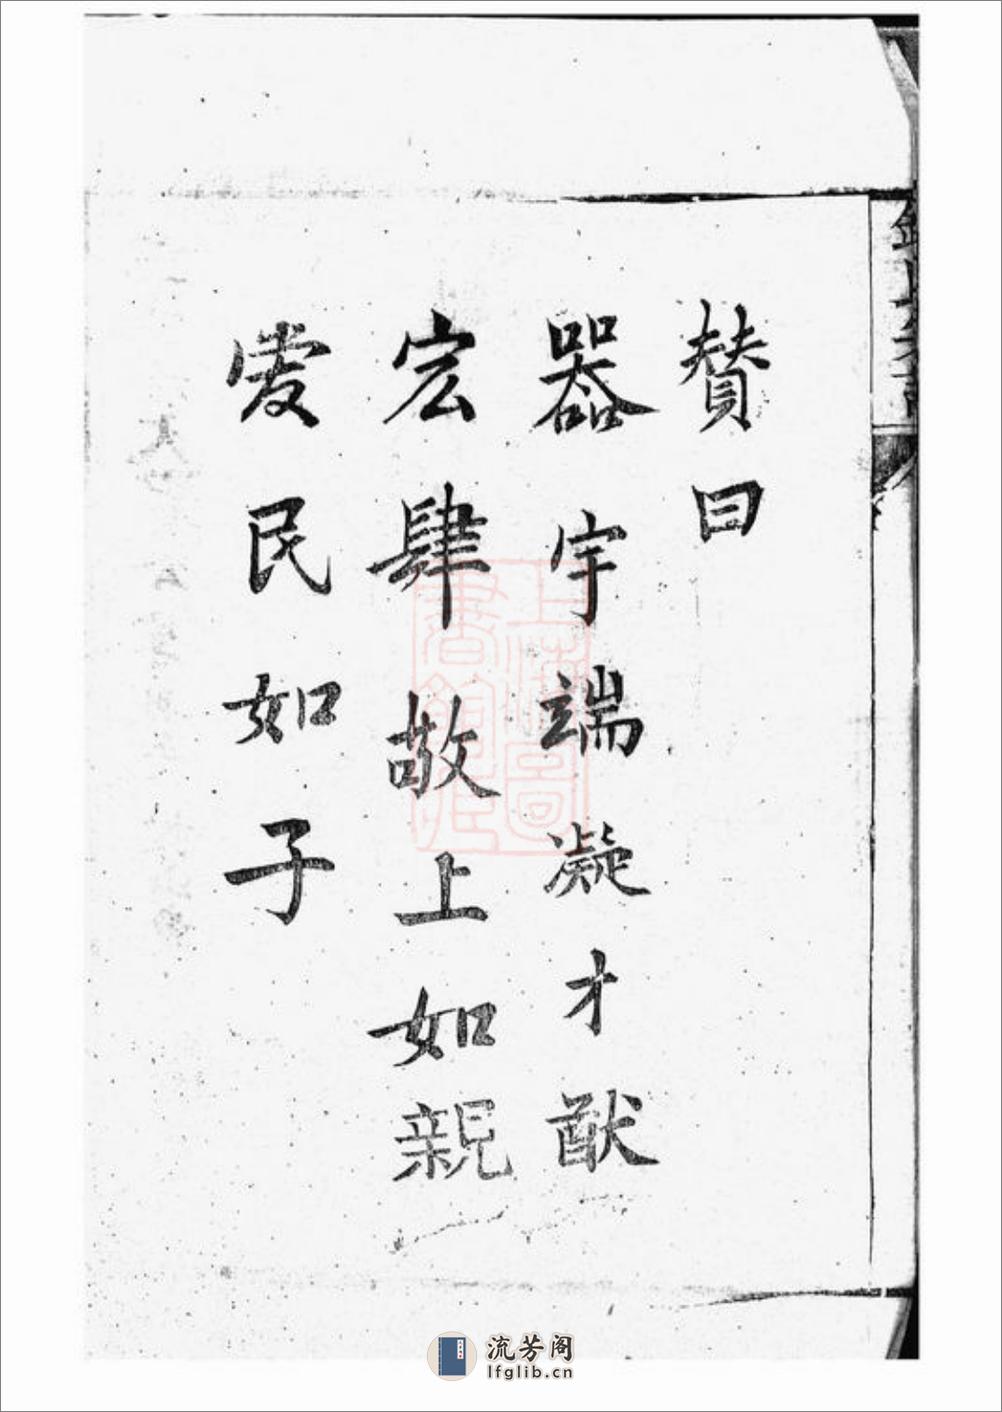 贊曰
器宇端凝才猷
宏肆敬上如親
爱民如子
上海圖書館藏
流芳阁
lfglib.cn